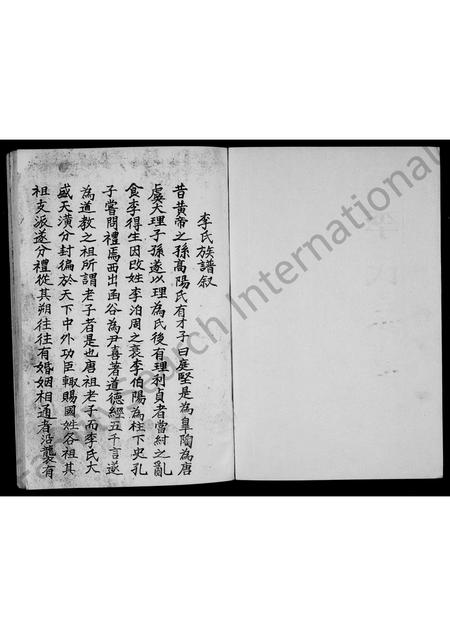 李氏族譜叙
昔黃帝之孫高陽氏有才子曰庭堅是為皐陶為唐
虞大理子孫遂以理為氏後有理利貞者當紂之亂
食李得生因改姓李泊周之衰李伯陽為柱下史孔
子嘗問禮焉西出函谷為尹喜著道德經五千言遂
為道教之祖所謂老子者是也唐祖老子而李氏大
盛天潢分封徧於天下中外功臣輒賜國姓各祖其
祖支派遂分禮從其朔往往有婚姻相通者沿襲有
Research International